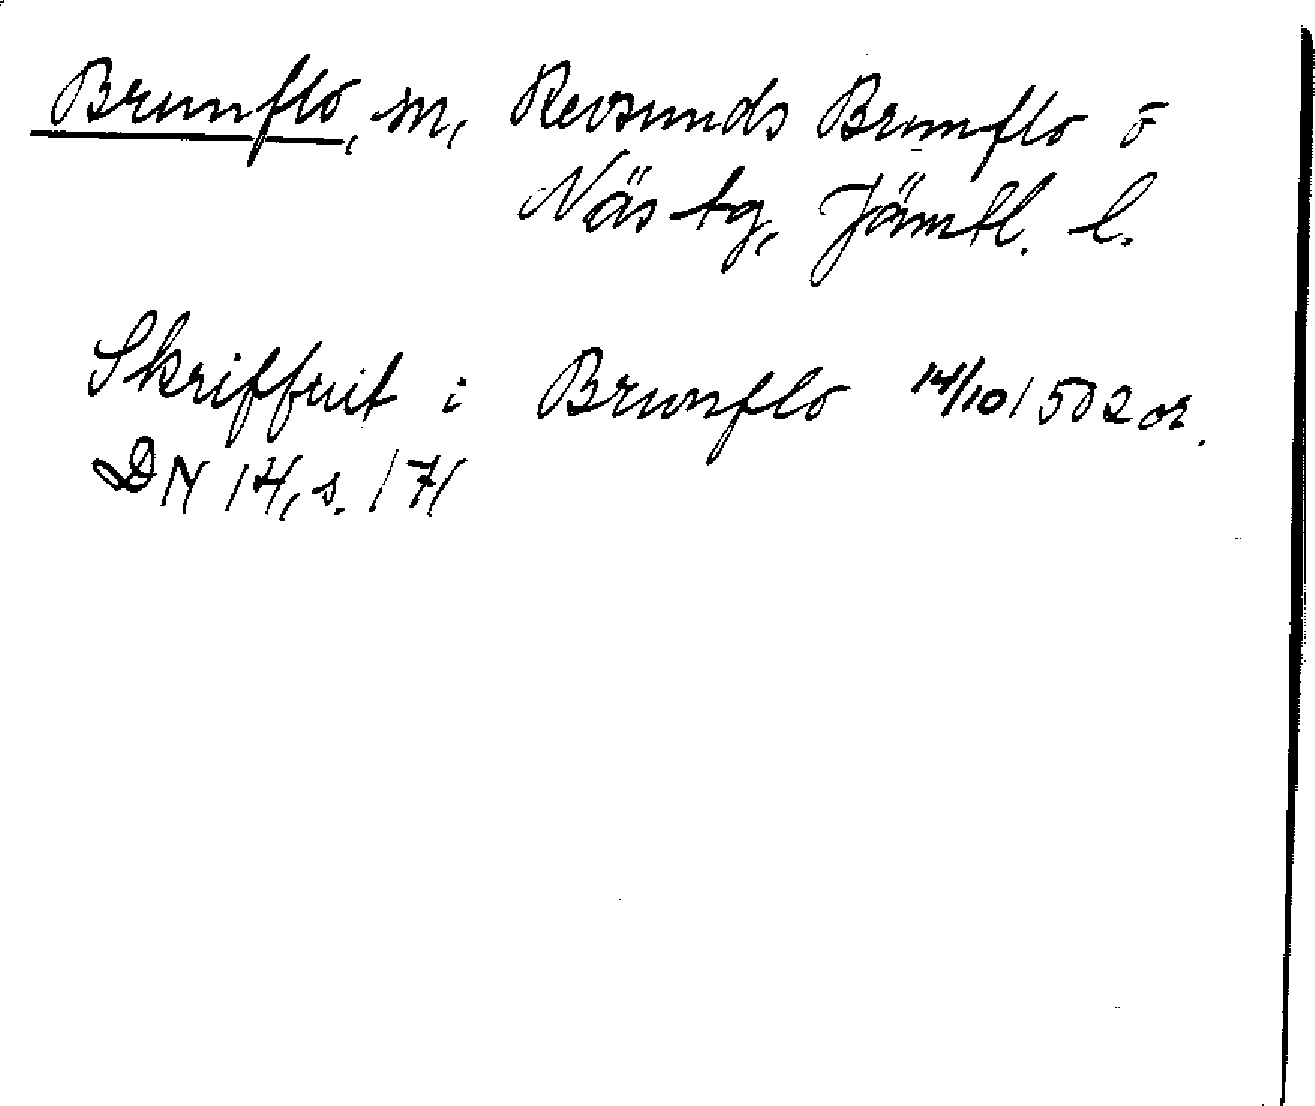 Brunflo, sn, Revsunds Brunflo o
Näs tg, Jämtl. l.
Skriffuit i Brunflo 14/10 1502 or.
DN 14, s. 171